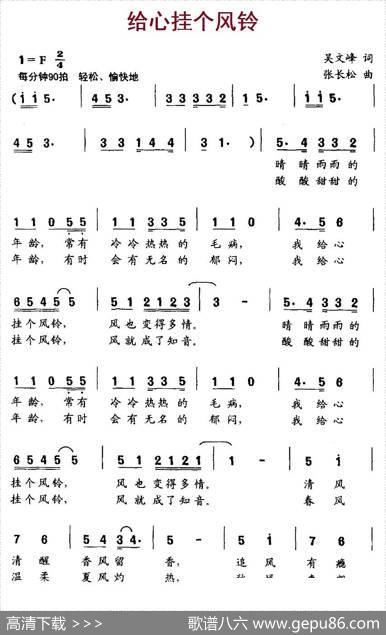 给心挂个风铃
1=F 2/4
吴文峰 词
每分钟90拍 轻松、愉快地
张长松 曲
( i i 5· | 4 5 3· | 3 3 3 3 2 | i 5· | i i i 5· |
4 5 3· | 3 3 1 4 4 | 3 3 1 ) | 5· 4 3 3 2 |
晴晴雨雨的
酸酸甜甜的
1 1 0 5 5 | 1 1 3 3 5 | 1 1 0 | 4· 5 6 |
年龄, 常有 冷冷热热的 毛病, 我给心
年龄, 有时 会有无名的 郁闷, 我给心
6 5 4 5 5 | 5 1 2 1 2 3 | 3 - | 5· 4 3 3 2 |
挂个风铃, 风也变得多情。 晴晴雨雨的
挂个风铃, 风就成了知音。 酸酸甜甜的
1 1 0 5 5 | 1 1 3 3 5 | 1 1 0 | 4· 5 6 |
年龄, 常有 冷冷热热的 毛病, 我给心
年龄, 有时 会有无名的 郁闷, 我给心
6 5 4 5 5 | 5 1 2 1 2 2 | 1 - | 5 i |
挂个风铃, 风也变得多情。 清风
挂个风铃, 风就成了知音。 春风
7 6 | 5 4 3 4 | 5 - | 5 5 | 7 6 |
清醒 香风留香, 追风有瘾
温柔 夏风灼热,
高清下载 >>>
歌谱八六 www.gepu86.com